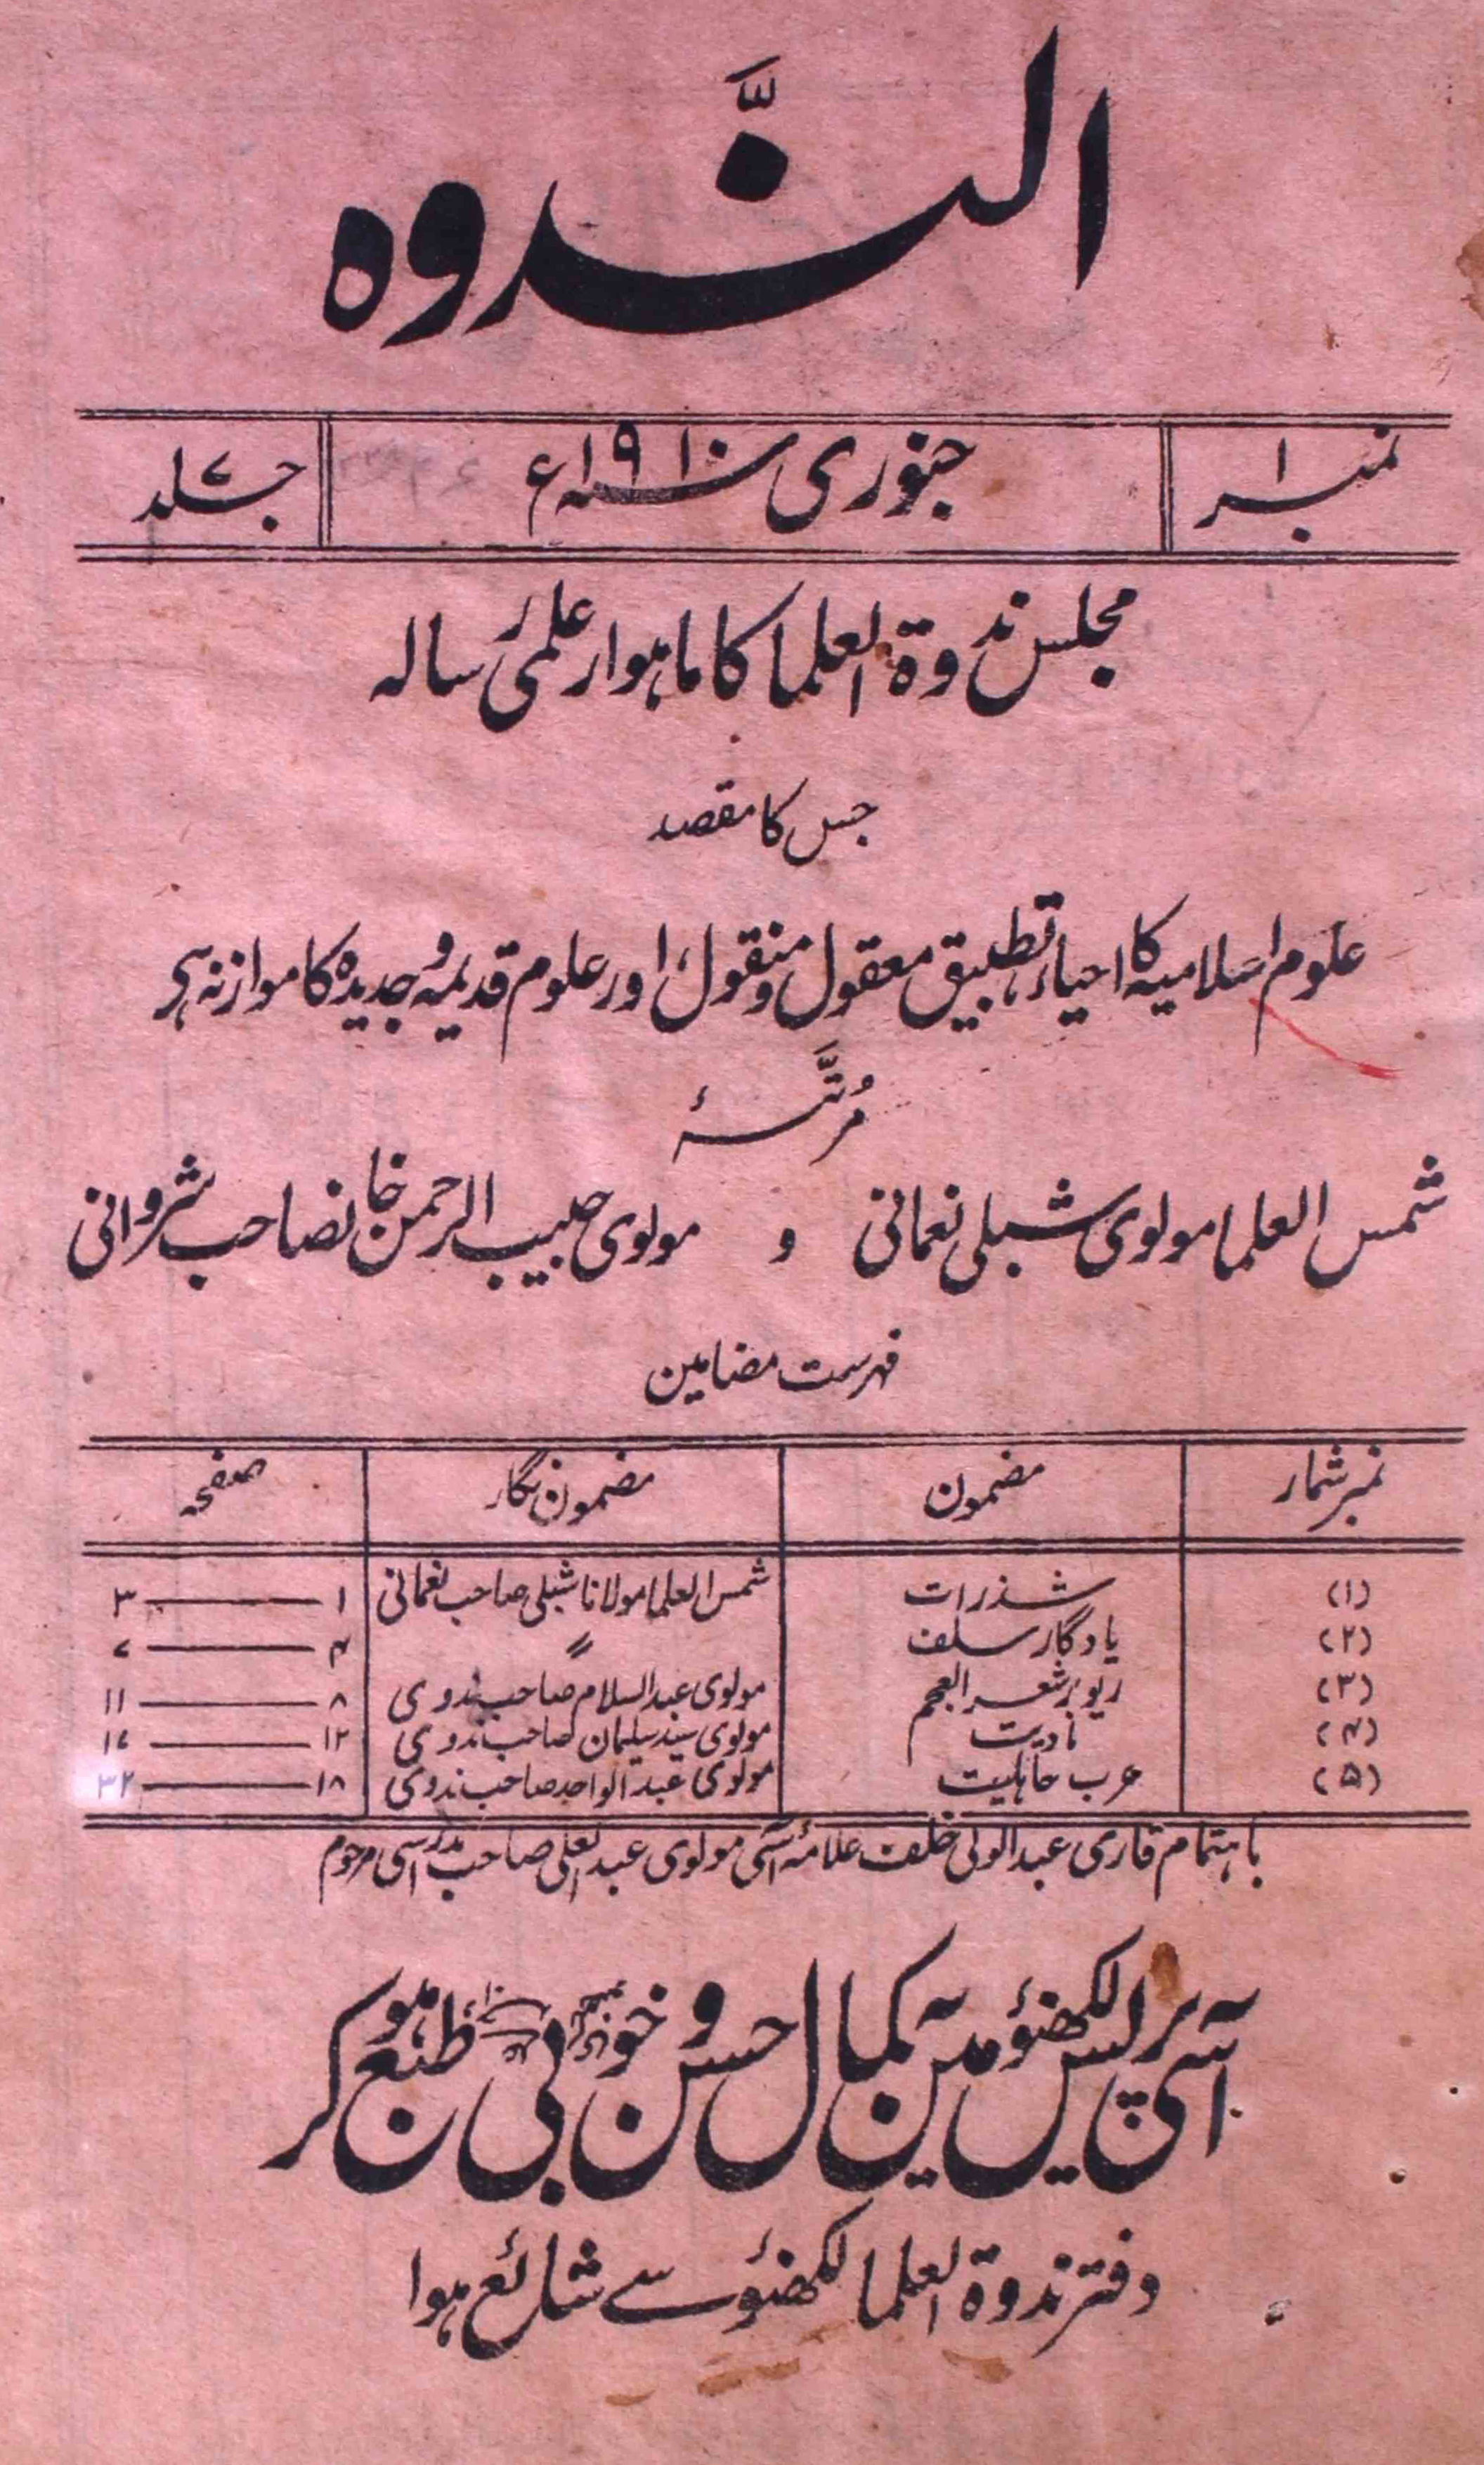 النَّدوہ
نمبر ۱ جنوری سنہ ۱۹۱۰ء جلد ۷
مجلس ندوۃ العلما کا ماہوار علمی رسالہ
جس کا مقصد
علوم اسلامیہ کا احیاء، تطبیق معقول و منقول، اور علوم قدیمہ و جدیدہ کا موازنہ ہی
مُرتَّبۂ
شمس العلما مولوی شبلی نعمانی و مولوی حبیب الرحمن خانصاحب شروانی
فہرست مضامین
نمبر شمار مضمون مضمون نگار صفحہ
(۱) شذرات شمس العلما مولانا شبلی صاحب نعمانی ۱ — ۳
(۲) یادگار سلف 〃 ۴ — ۷
(۳) ریویو بر شعر العجم مولوی عبدالسلام صاحب ندوی ۸ — ۱۱
(۴) مادیت مولوی سید سلیمان صاحب ندوی ۱۲ — ۱۷
(۵) عرب جاہلیت مولوی عبدالواجد صاحب ندوی ۱۸ — ۳۲
باہتمام قاری عبدالولی خلف علامۂ آسی مولوی عبدالعلی صاحب مدراسی مرحوم
آسی پریس لکھنؤ مین بکمال حسن و خوبی طبع ہوکر
دفتر ندوۃ العلما لکھنؤ سے شائع ہوا